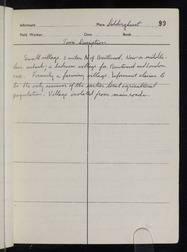 Informant Place Doddinghurst 93
Field Worker Date Book
Town Description
Small village 2 miles N of Brentwood. Now a middle-
class suburb, a bedroom village for Brentwood and London
men. Formerly a farming village. Informant claims to
be the only survivor of the earlier local agricultural
population. Village isolated from main roads.